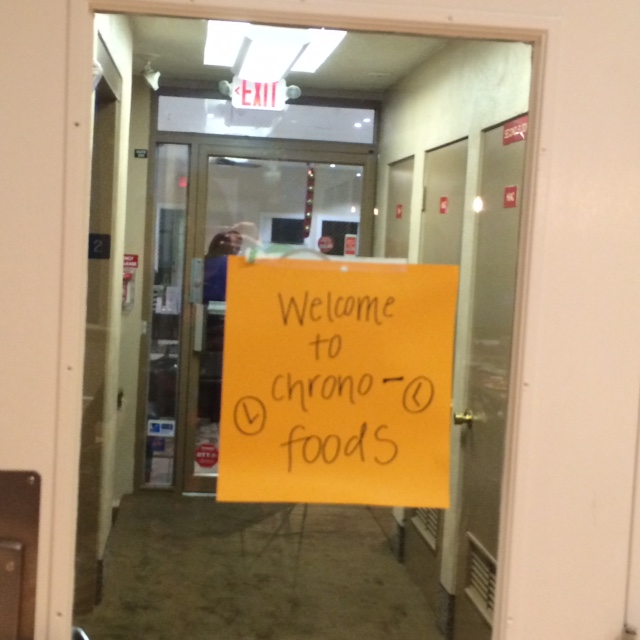 EXIT
2
Welcome
to
chrono-
foods